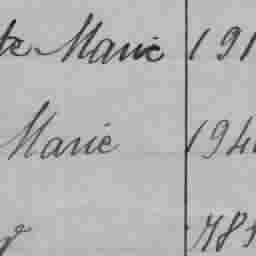 te Marie 191
Marie 194
781